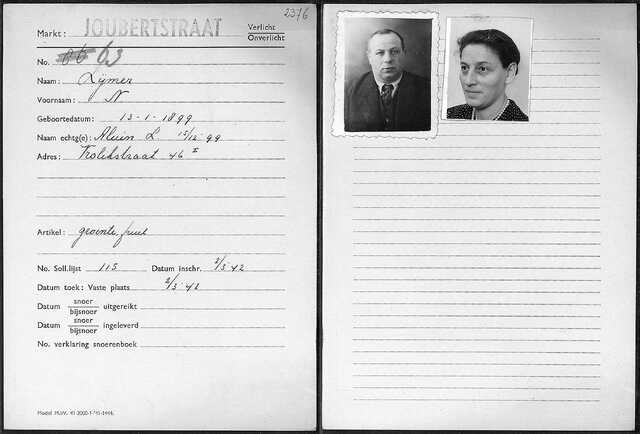 2376
Markt: JOUBERTSTRAAT Verlicht
Onverlicht
No. 63
Naam: Lymer
Voornaam: N
Geboortedatum: 13-1-1899
Naam echtg(e): Aluin L 15/12 99
Adres: Trolikstraat 46 I
Artikel: groente fruit
No. Soll.lijst 115 Datum inschr. 2/3 42
Datum toek: Vaste plaats 2/3 42
Datum snoer/bijsnoer uitgereikt
Datum snoer/bijsnoer ingeleverd
No. verklaring snoerenboek